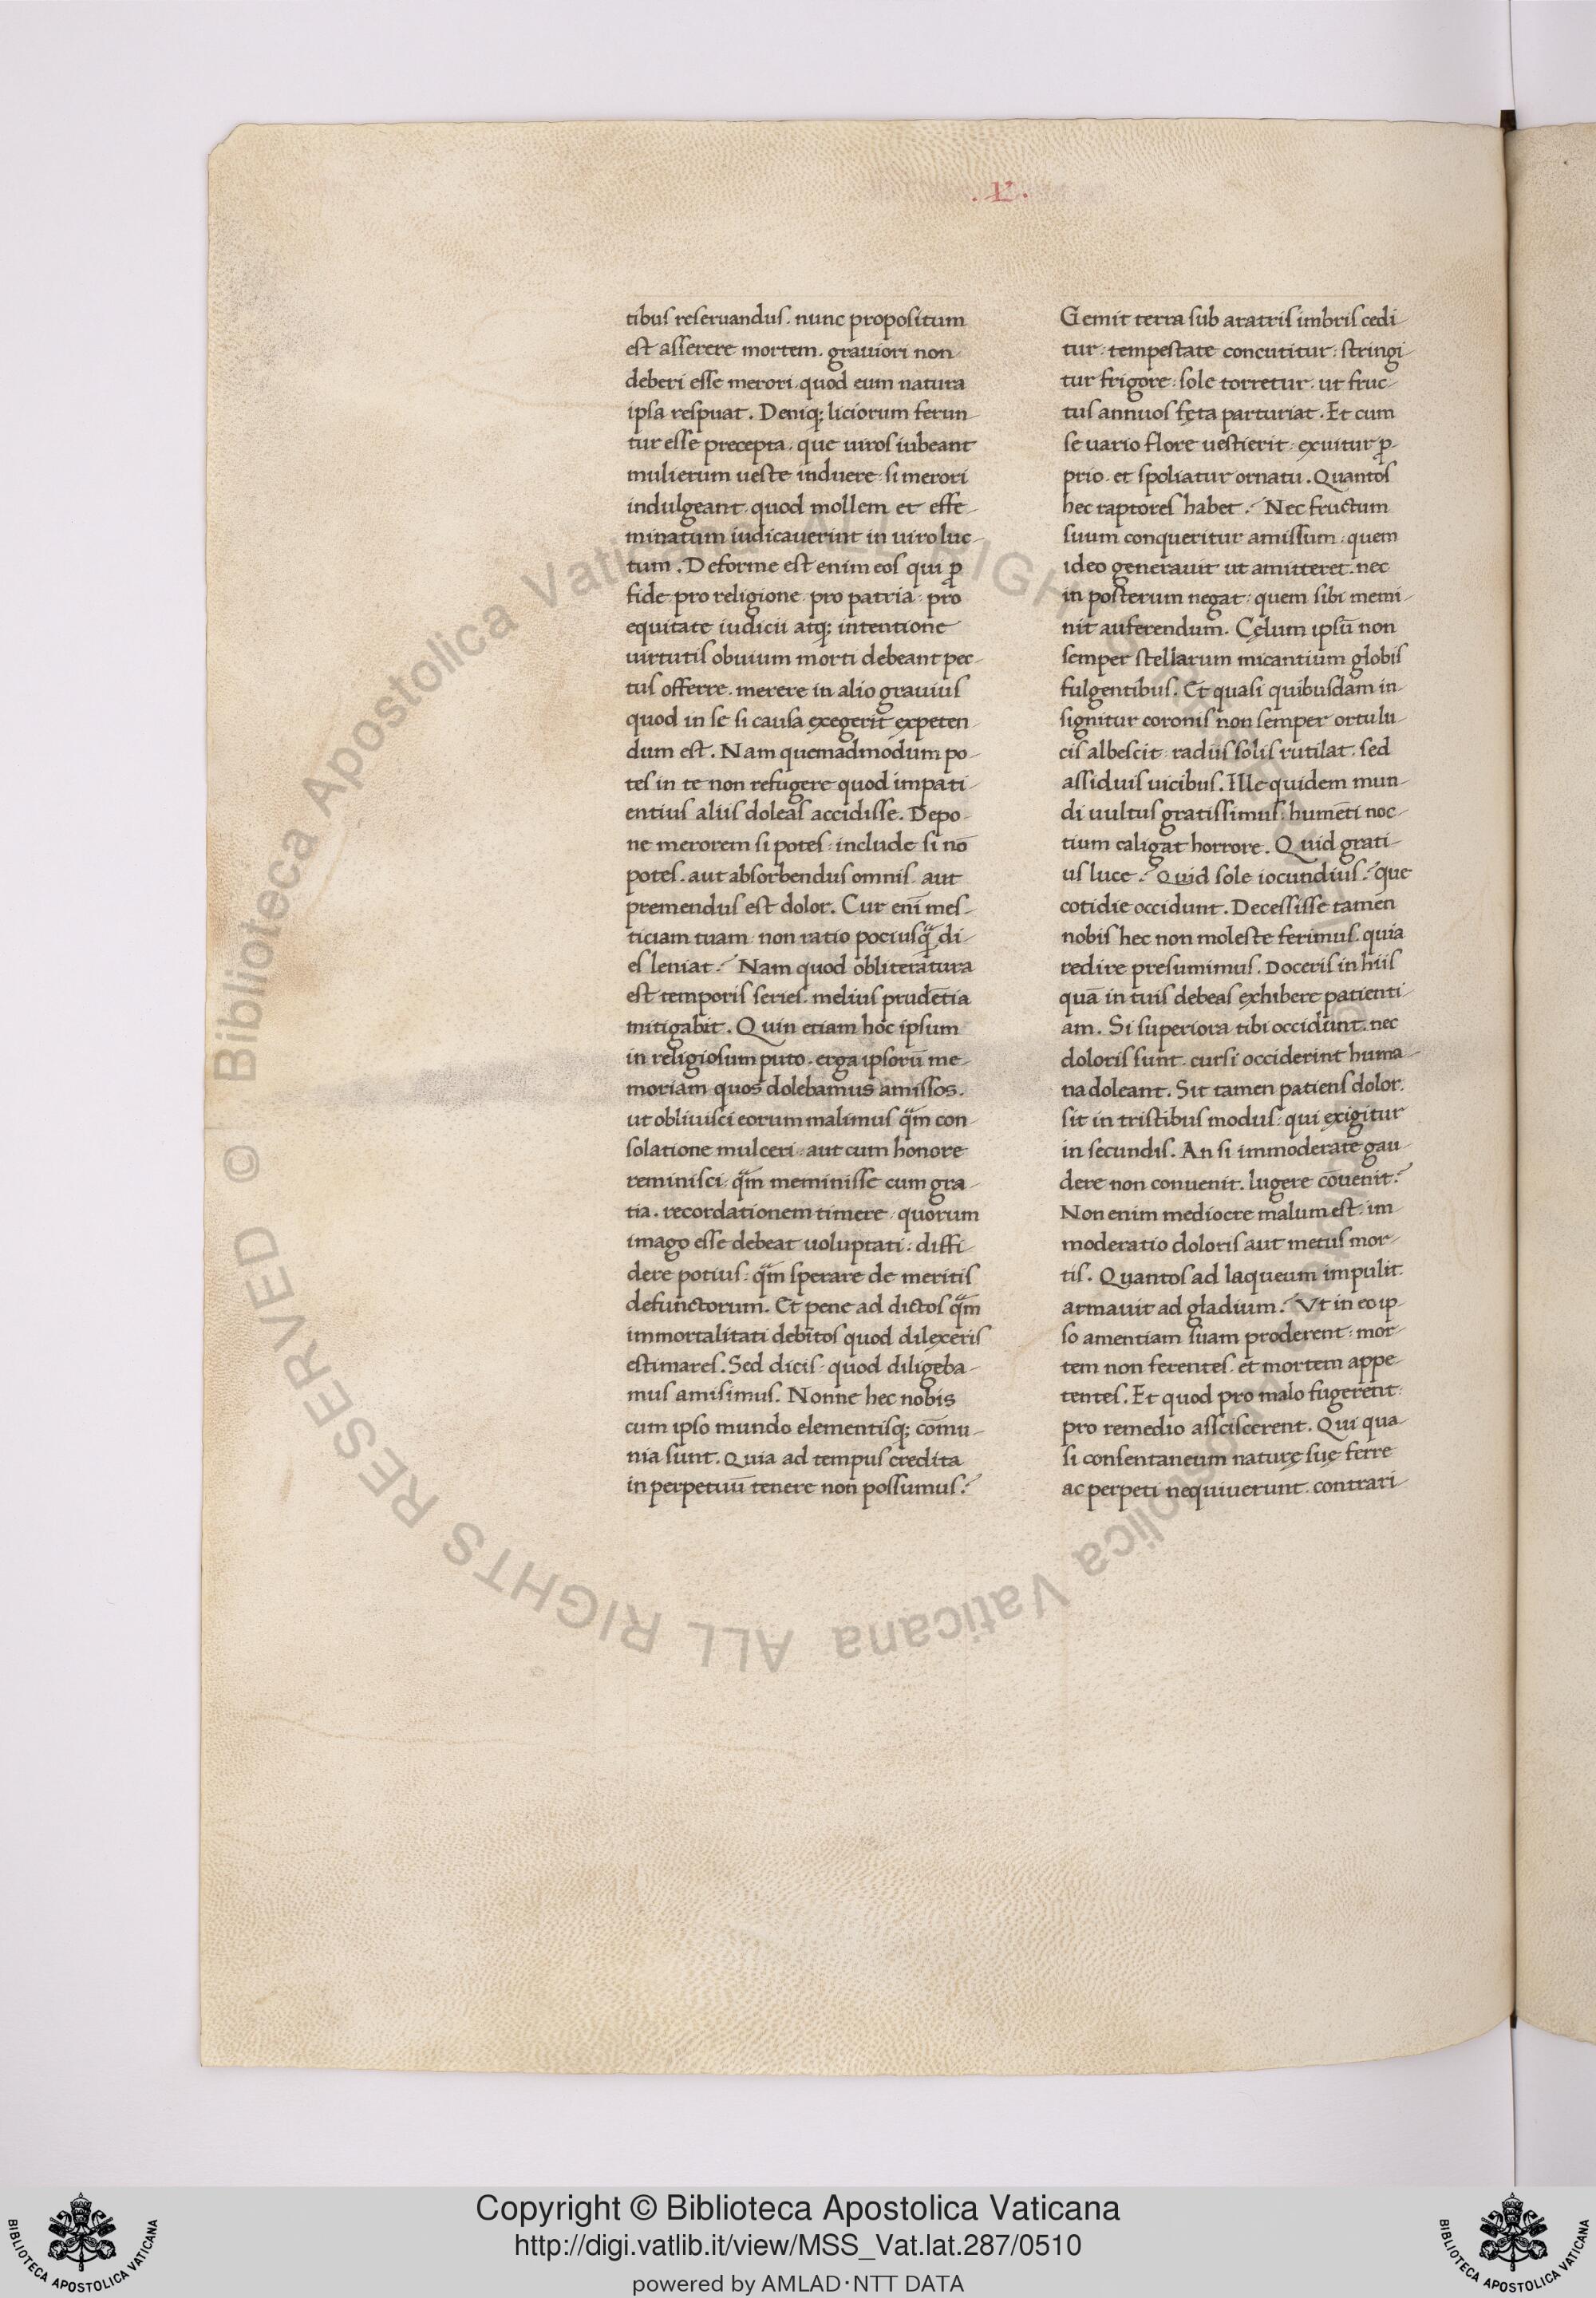 .L.
tibus reseruandus. nunc propositum
est asserere mortem. grauiori non
deberi esse merori. quod eum natura
ipsa respuat. Deniq; liciorum ferun-
tur esse precepta. que uiros iubeant
mulierum ueste induere. si merori
indulgeant. quod mollem et effe-
minatum iudicauerint in uiro luc-
tum. Deforme est enim eos qui ꝓ
fide pro religione. pro patria. pro
equitate iudicii atq; intentione
uirtutis obuium morti debeant pec-
tus offerre. merere in alio grauius
quod in se si causa exegerit expeten-
dum est. Nam quemadmodum po-
tes in te non refugere quod impati-
entius aliis doleas accidisse. Depo-
ne merorem si potes. include si nō
potes. aut absorbendus omnis. aut
premendus est dolor. Cur eni̅ mes-
ticiam tuam. non ratio pociusq̃ di-
es leniat? Nam quod obliteratura
est temporis series. melius prude̅tia
mitigabit. Quin etiam hoc ipsum
in religiosum puto. erga ipsoru̅ me-
moriam quos dolebamus amissos.
ut obliuisci eorum malimus q̃m con-
solatione mulceri. aut cum honore
reminisci. q̃m meminisse cum gra-
tia. recordationem timere. quorum
imago esse debeat uoluptati: diffi-
dere potius. q̃m sperare de meritis
defunctorum. Et pene ad dictos q̃m
immortalitati debitos quod dilexeris
estimares. Sed dicis. quod diligeba-
mus amisimus. Nonne hec nobis
cum ipso mundo elementisq; co̅mu-
nia sunt. Quia ad tempus credita
in perpetuu̅ tenere non possumus?
Gemit terra sub aratris imbris cedi
tur. tempestate concutitur. stringi-
tur frigore: sole torretur. ut fruc-
tus annuos fęta parturiat. Et cum
se uario flore uestierit. exuitur ꝓ-
prio. et spoliatur ornatu. Quantos
hec raptores habet? Nec fructum
suum conqueritur amissum. quem
ideo generauit ut amitteret. nec
in posterum negat. quem sibi memi-
nit auferendum. Cęlum ipsu̅ non
semper stellarum micantium globis
fulgentibus. Et quasi quibusdam in-
signitur coronis non semper ortu lu-
cis albescit. radiis solis rutilat. sed
assiduis uicibus. Ille quidem mun-
di uultus gratissimus. hume̅ti noc-
tium caligat horrore. Quid grati-
us luce? Quid sole iocundius? que
cotidie occidunt. Decessisse tamen
nobis hec non moleste ferimus. quia
redire presumimus. Doceris in hiis
qua̅ in tuis debeas exhibere patienti-
am. Si superiora tibi occidunt. nec
doloris sunt. cur si occiderint huma-
na doleant. Sit tamen patiens dolor.
sit in tristibus modus. qui exigitur
in secundis. An si immoderate gau-
dere non conuenit. lugere co̅uenit?
Non enim mediocre malum est. im-
moderatio doloris aut metus mor-
tis. Quantos ad laqueum impulit.
armauit ad gladium? Vt in eo ip-
so amentiam suam proderent. mor-
tem non ferentes. et mortem appe-
tentes. Et quod pro malo fugerent.
pro remedio assciscerent. Qui qua-
si consentaneum naturę suę ferre
ac perpeti nequiuerunt. contrari-
© Biblioteca Apostolica Vaticana ALL RIGHTS RESERVED
Copyright © Biblioteca Apostolica Vaticana
http://digi.vatlib.it/view/MSS_Vat.lat.287/0510
powered by AMLAD·NTT DATA
BIBLIOTECA APOSTOLICA VATICANA
BIBLIOTECA APOSTOLICA VATICANA